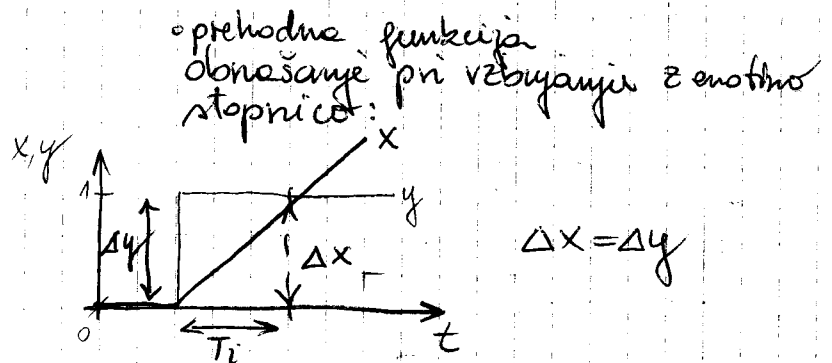 ° prehodna funkcija
obnašanje pri vzbujanju z enotino
stopnico:
x, y
x
1
y
Δy
Δx
Δx = Δy
0
Ti
t